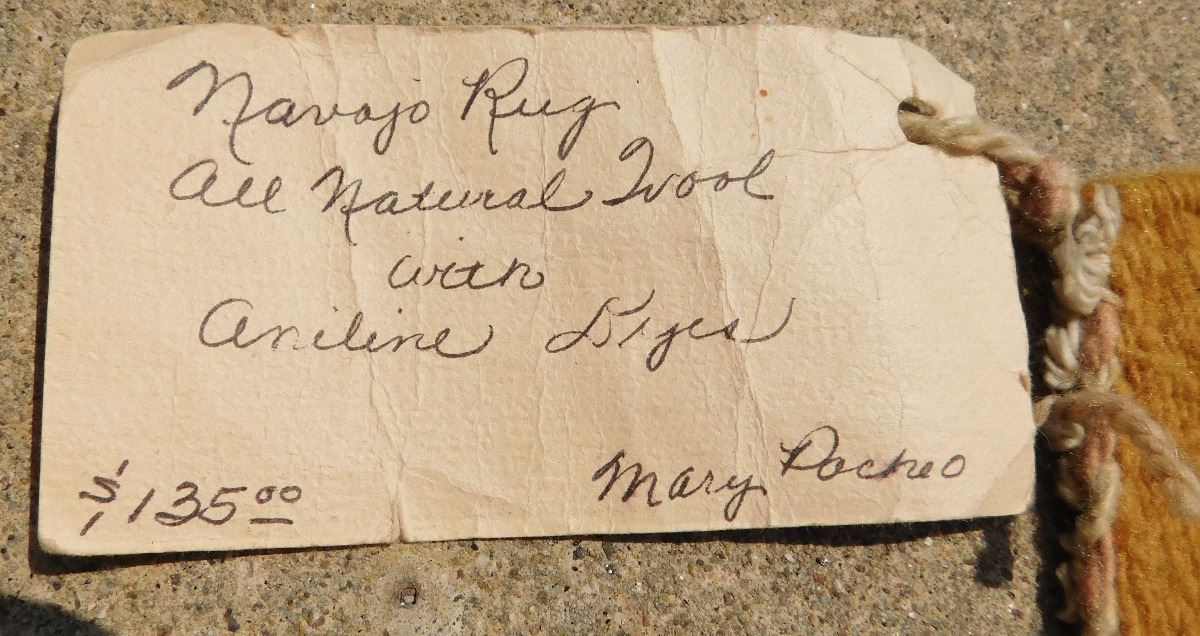 Navajo Rug
All Natural Wool
with
Aniline Dyes
$135.00
Mary Pocheo